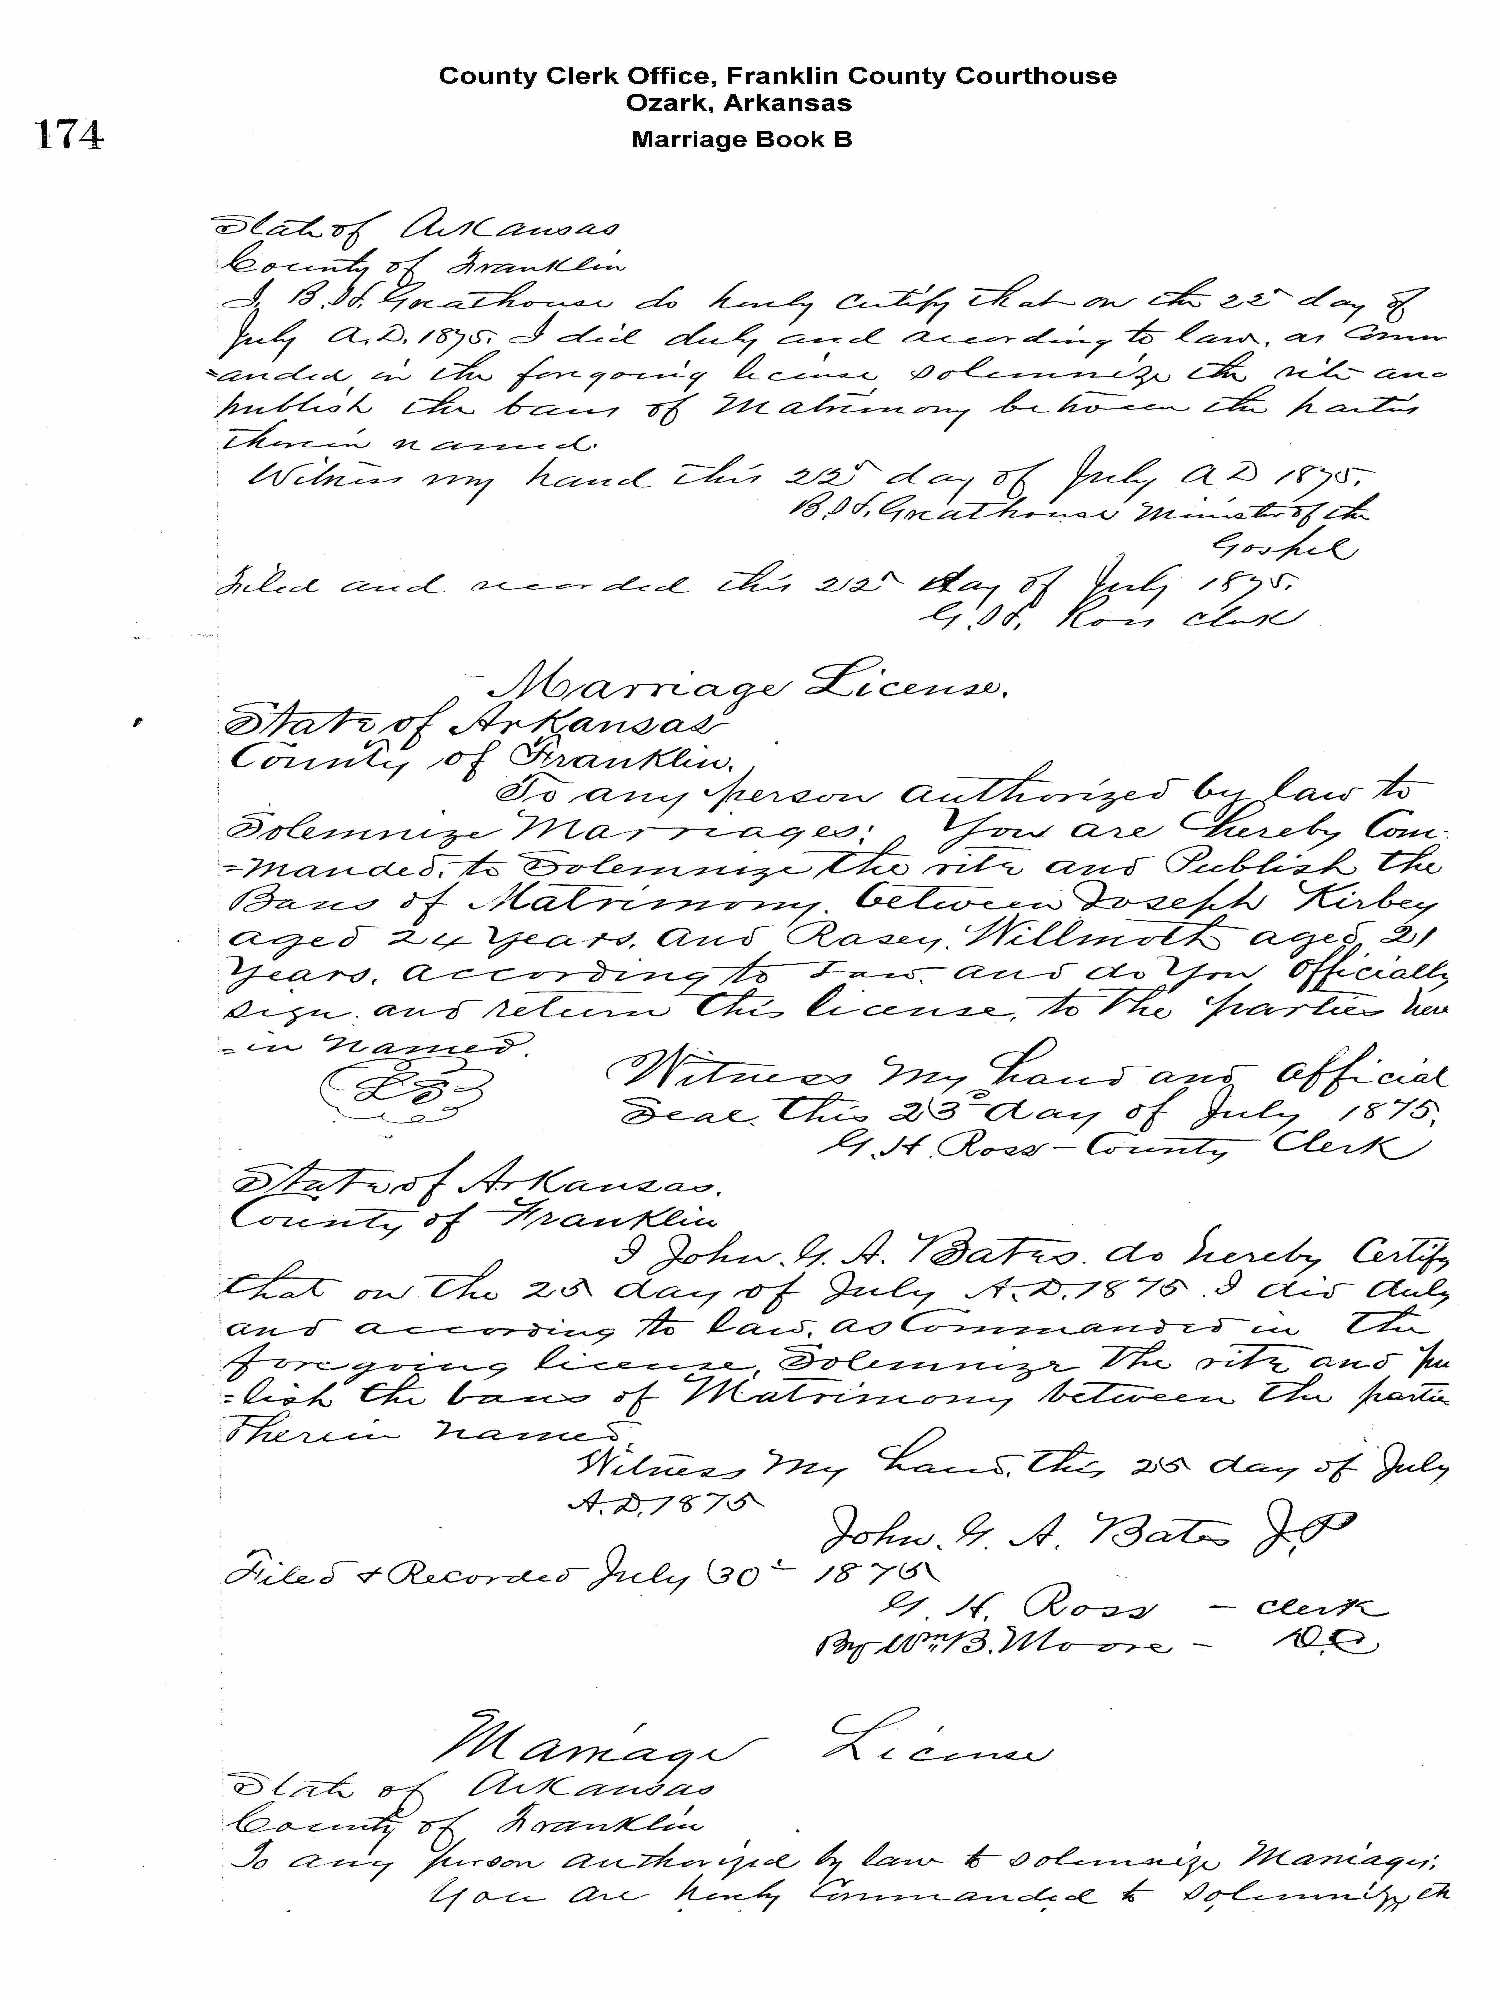 County Clerk Office, Franklin County Courthouse
Ozark, Arkansas
174
Marriage Book B
State of Arkansas
County of Franklin
I, B. H. Greathouse do herely certify that on the 22d day of
July A.D. 1875. I did duly and according to law, as Comm
=anded in the foregoing license solemnize the rite and
publish the bans of Matrimony between the parties
therein named.
Witness my hand this 22d day of July A D 1875.
B. H. Greathouse Minister of the
Gospel
Filed and recorded this 22d day of July 1875.
G. H. Ross clerk
Marriage License.
State of Arkansas
County of Franklin.
To any person authorized by law to
Solemnize Marriages; You are hereby Com-
=manded, to Solemnize the rite and Publish the
Bans of Matrimony, between Joseph Kirbey
aged 24 Years, and Rasey Willmoth aged 21
Years, according to Law, and do You Officially
sign and return this license, to the parties here
-in named.
LS
Witness My hand and official
Seal, this 23d day of July 1875,
G. H. Ross - County Clerk
State of Arkansas.
County of Franklin
I John. G. A. Bates. do hereby Certify
that on the 25 day of July A.D. 1875. I did duly
and according to law, as Commanded in the
foregoing license, Solemnize the rite and pu
=lish the bans of Matrimony between the partie
Therein named.
Witness My hand, this 25 day of July
A.D. 1875
John. G. A. Bates J.P
Filed & Recorded July 30t 1875
G. H. Ross - clerk
By Wm B. Moore - D.C.
Marriage License
State of Arkansas
County of Franklin
To any person authorized by law to solemnize Marriages;
You are herely Commanded to solemnize th